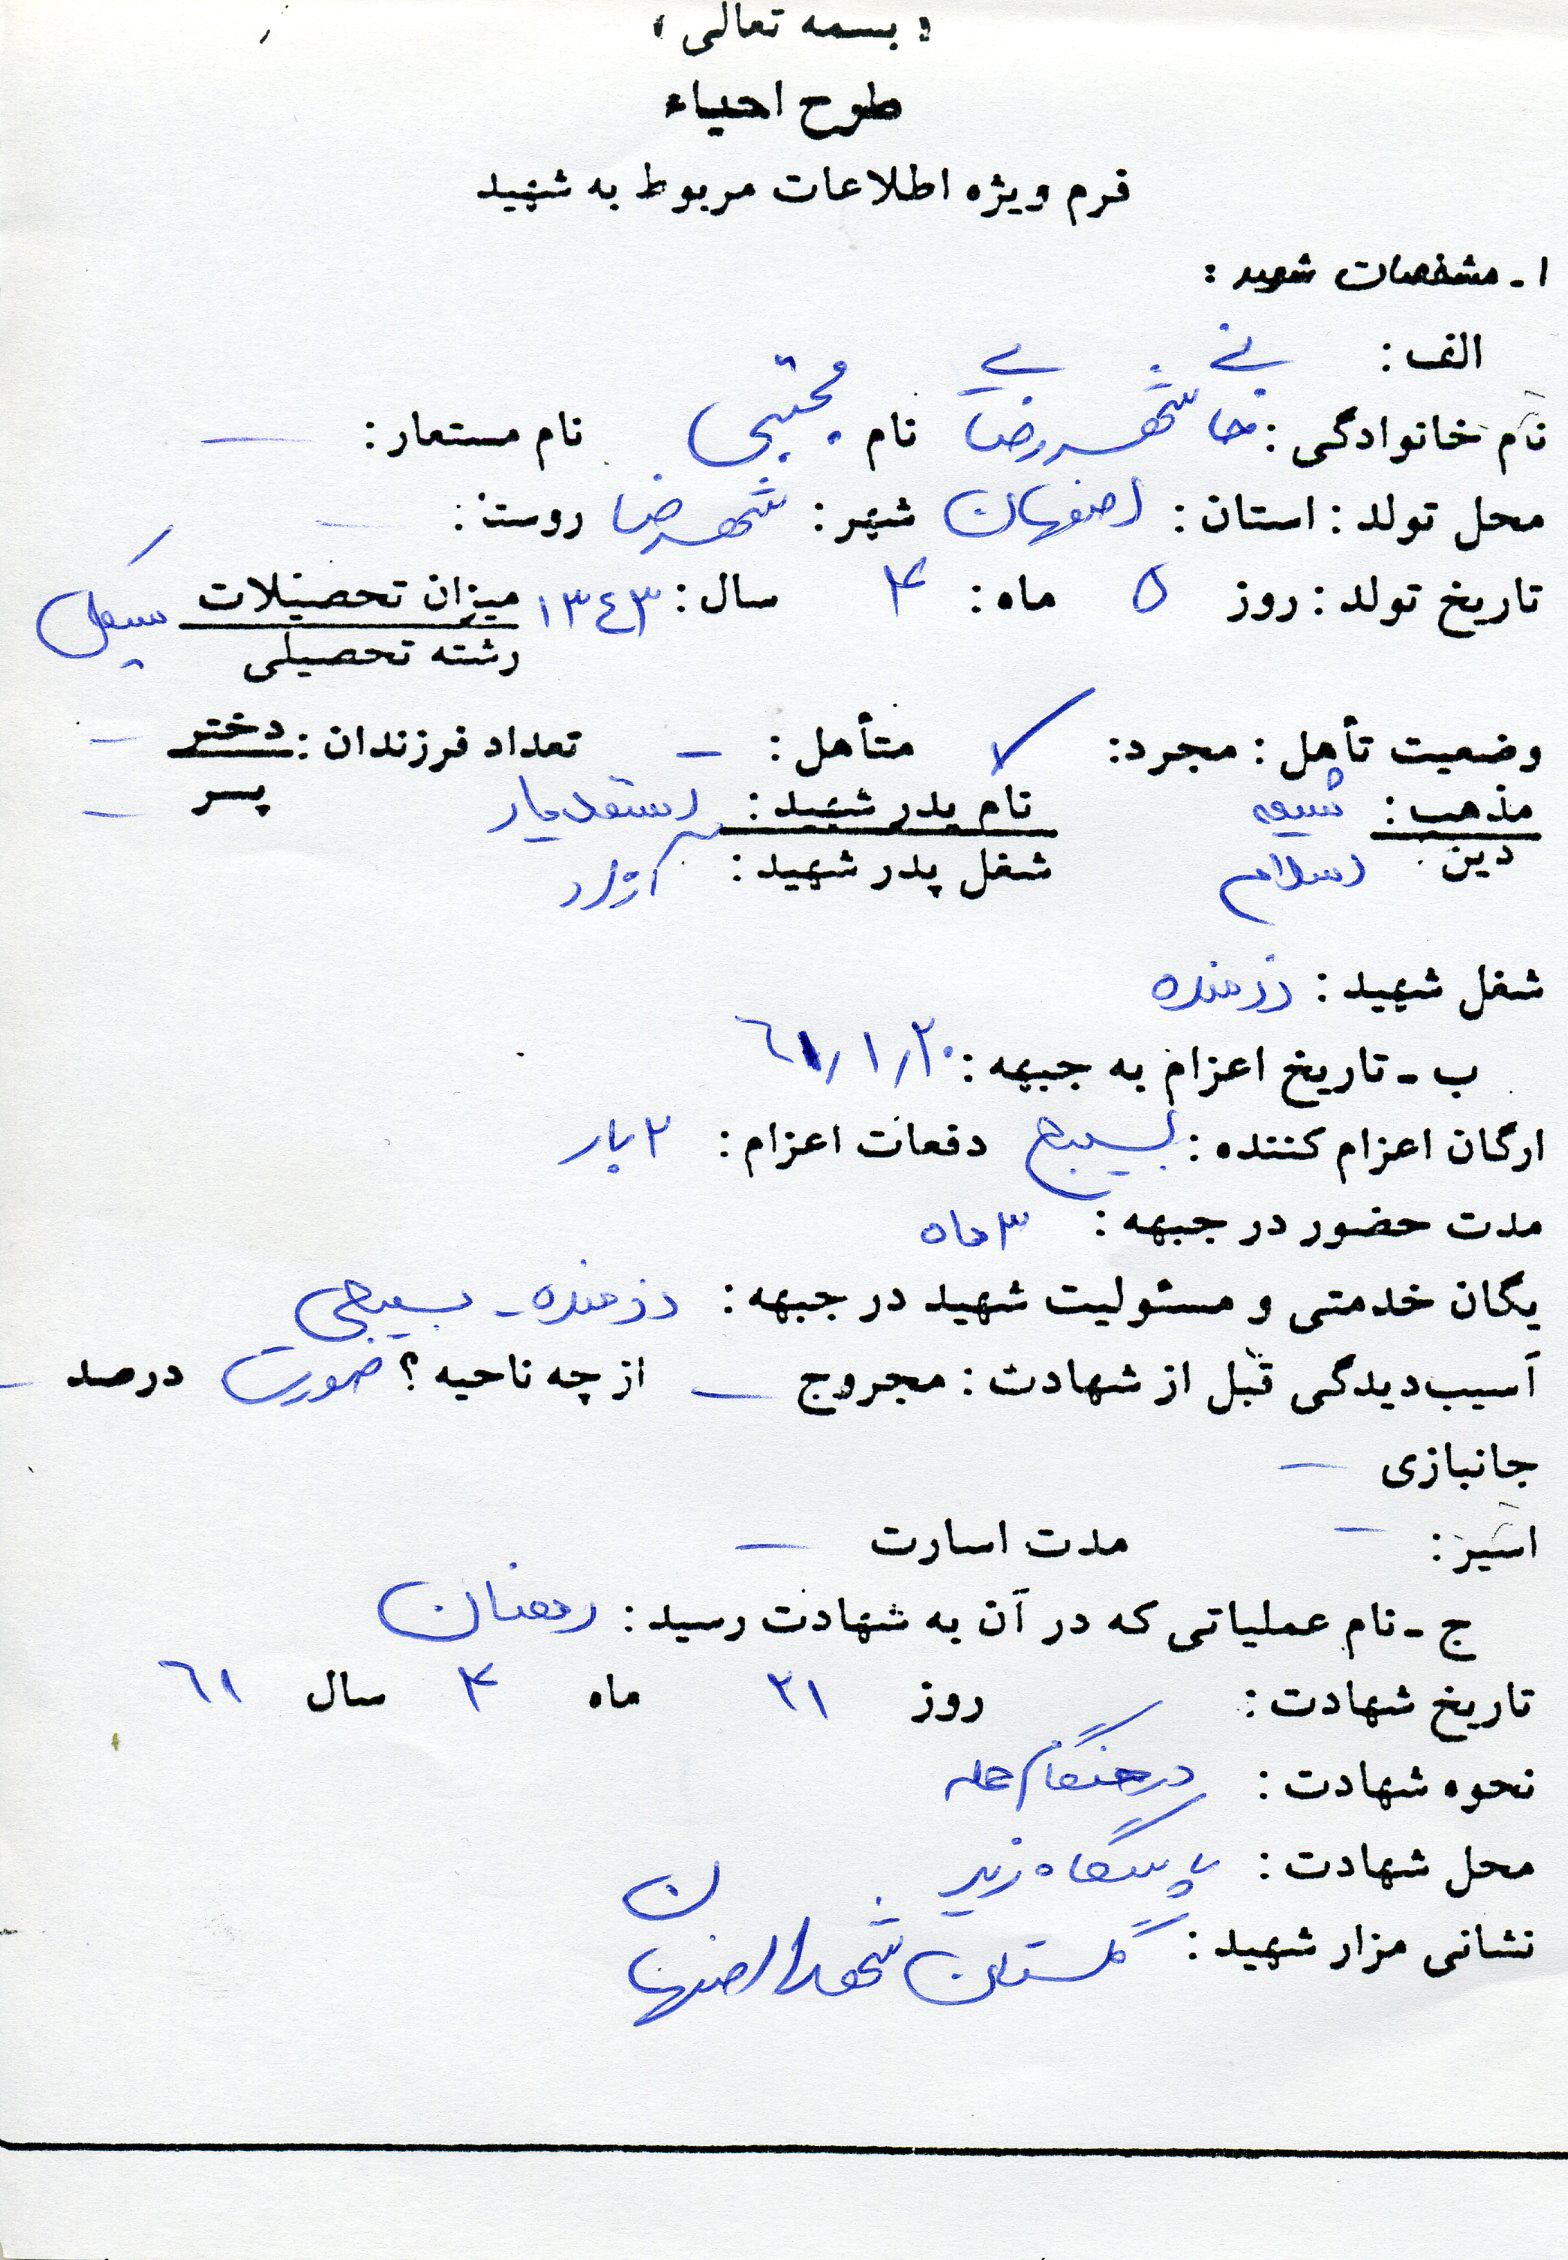 « بسمه تعالی »
طرح احیاء
فرم ویژه اطلاعات مربوط به شهید
۱ - مشخصات شهید :
الف :
نام خانوادگی : خانی شهرضایی نام مجتبی نام مستعار : —
محل تولد : استان : اصفهان شهر : شهرضا روستا : —
تاریخ تولد : روز ۵ ماه : ۴ سال : ۱۳۴۳ میزان تحصیلات سیکل
رشته تحصیلی
وضعیت تأهل : مجرد : ✓ متأهل : — تعداد فرزندان : دختر —
مذهب : شیعه نام پدر شهید : اسفندیار پسر —
دین اسلام شغل پدر شهید : آزاد
شغل شهید : رزمنده
ب - تاریخ اعزام به جبهه : ۶۱/۱/۲۰
ارگان اعزام کننده : بسیج دفعات اعزام : ۲ بار
مدت حضور در جبهه : ۳ ماه
یگان خدمتی و مسئولیت شهید در جبهه : رزمنده - بسیجی
آسیب‌دیدگی قبل از شهادت : مجروح — از چه ناحیه ؟ صورت درصد —
جانبازی —
اسیر : — مدت اسارت —
ج - نام عملیاتی که در آن به شهادت رسید : رمضان
تاریخ شهادت : روز ۲۱ ماه ۴ سال ۶۱
نحوه شهادت : در هنگام حمله
محل شهادت : پاسگاه زید
نشانی مزار شهید : گلستان شهدا اصفهان